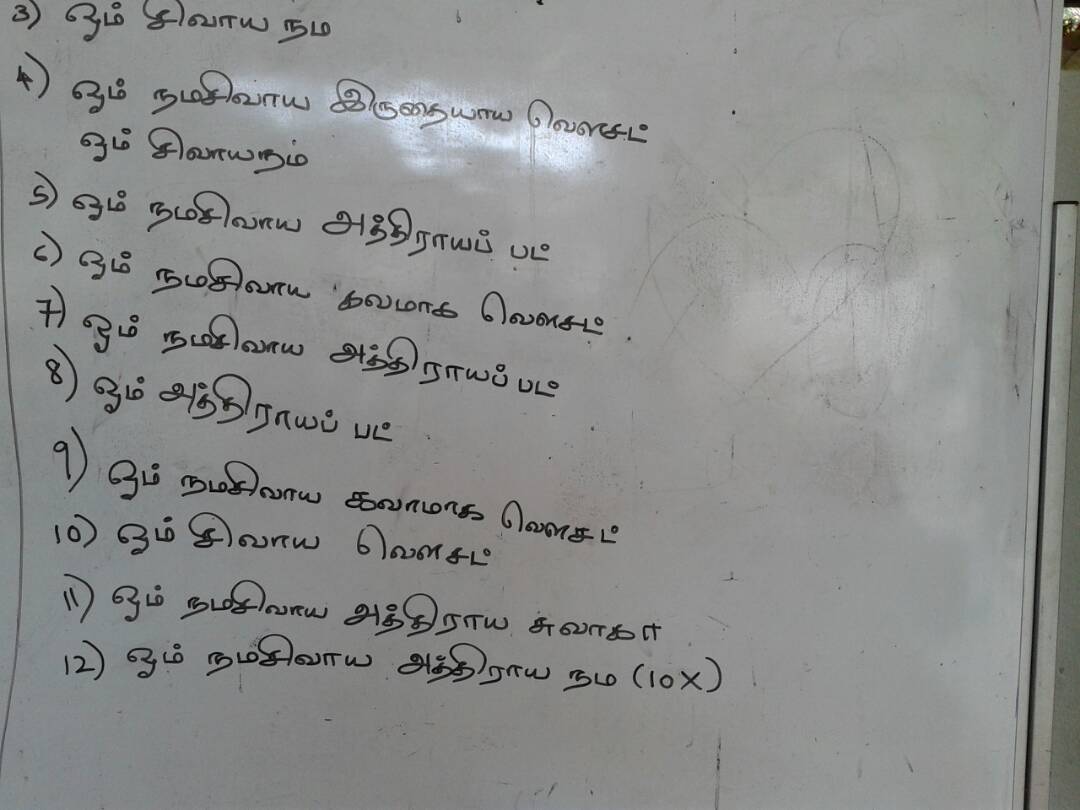 3) ஓம் சிவாய நம
4) ஓம் நமசிவாய இருதையாய வௌசட்
ஓம் சிவாயநம்
5) ஓம் நமசிவாய அத்திராயப் பட்
6) ஓம் நமசிவாய கவமாக வௌசட்
7) ஓம் நமசிவாய அத்திராயப் பட்
8) ஓம் அத்திராயப் பட்
9) ஓம் நமசிவாய கவாமாக வௌசட்
10) ஓம் சிவாய வௌசட்
11) ஓம் நமசிவாய அத்திராய சுவாகா
12) ஓம் நமசிவாய அத்திராய நம (10X)